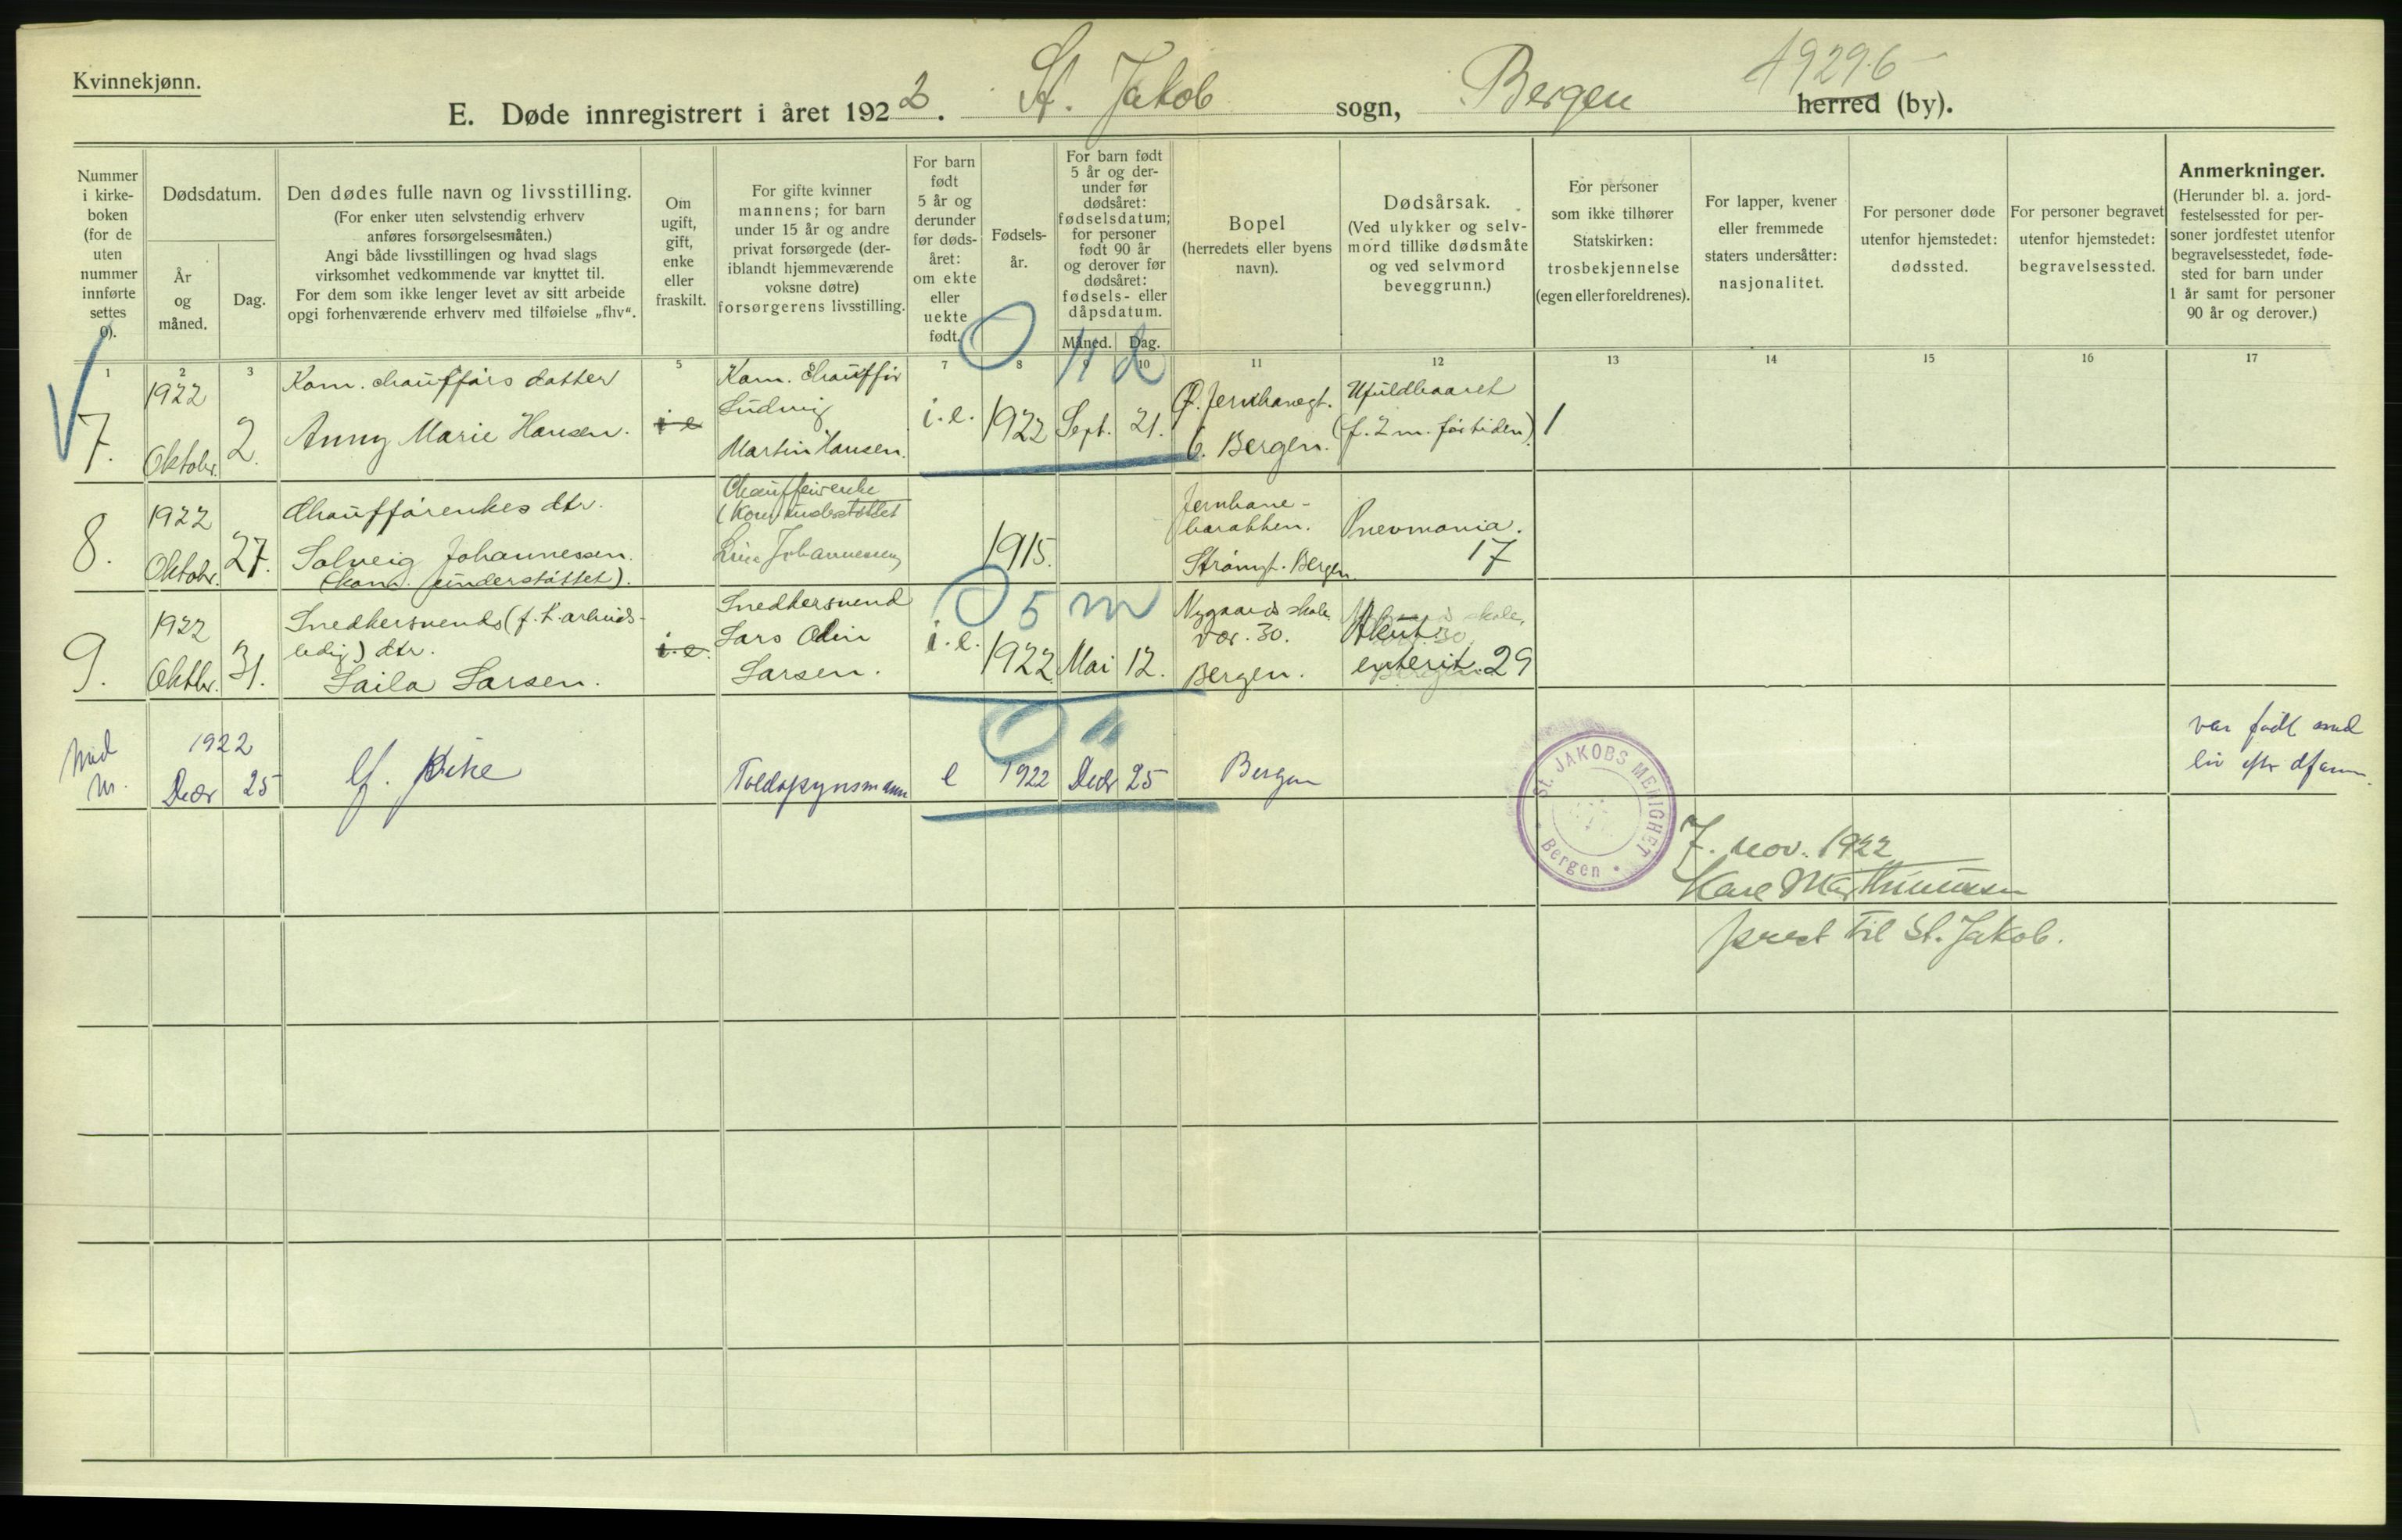 Kvinnekjønn.
E. Døde innregistrert i året 1922. St. Jakob sogn, Bergen herred (by).
49296
Nummer
i kirke-
boken
(for de
uten
nummer
innførte
settes
0).
Dødsdatum.
År
og
måned.
Dag.
Den dødes fulle navn og livsstilling.
(For enker uten selvstendig erhverv
anføres forsørgelsesmåten.)
Angi både livsstillingen og hvad slags
virksomhet vedkommende var knyttet til.
For dem som ikke lenger levet av sitt arbeide
opgi forhenværende erhverv med tilføielse „fhv“.
Om
ugift,
gift,
enke
eller
fraskilt.
For gifte kvinner
mannens; for barn
under 15 år og andre
privat forsørgede (der-
iblandt hjemmeværende
voksne døtre)
forsørgerens livsstilling.
For barn
født
5 år og
derunder
før døds-
året:
om ekte
eller
uekte
født.
Fødsels-
år.
For barn født
5 år og der-
under før
dødsåret:
fødselsdatum;
for personer
født 90 år
og derover før
dødsåret:
fødsels- eller
dåpsdatum.
Måned. Dag.
Bopel
(herredets eller byens
navn).
Dødsårsak.
(Ved ulykker og selv-
mord tillike dødsmåte
og ved selvmord
beveggrunn.)
For personer
som ikke tilhører
Statskirken:
trosbekjennelse
(egen eller foreldrenes).
For lapper, kvener
eller fremmede
staters undersåtter:
nasjonalitet.
For personer døde
utenfor hjemstedet:
dødssted.
For personer begravet
utenfor hjemstedet:
begravelsessted.
Anmerkninger.
(Herunder bl. a. jord-
festelsessted for per-
soner jordfestet utenfor
begravelsesstedet, føde-
sted for barn under
1 år samt for personer
90 år og derover.)
1 2 3 5 7 8 9 10 11 12 13 14 15 16 17
0 11 d
7.
1922
Oktobr.
2.
Kom. chaufførs datter
Anny Marie Hansen.
i e
Kom. chauffør
Ludvig
Martin Hansen.
i. e.
1922
Sept.
21.
Ø. Jernbanegt.
6. Bergen.
Ufuldbaaret
(f. 2 m. før tiden)
1
8.
1922
Oktobr.
27.
Chaufførenkes dtr.
Solveig Johannessen.
(kom. understøttet).
Chauffeurenke
(Kom. understøttet
Johannessen
1915.
Jernbane-
barakken.
Strømgt. Bergen.
Pnevmonia.
17
0 5 m
9.
1922
Oktbr.
31.
Snedkersvends (f. t. arbeids-
ledig) dtr.
Laila Larsen.
i. e.
Snedkersvend
Lars Odin
Larsen.
i. e.
1922
Mai
12.
Nygaards skole
vær. 30.
Bergen.
Akut
enterit. 29
0 11
1922
Decbr
25
Toldopsynsmann
e
1922
Decbr
25
Bergen
var født med
liv efter
St. JAKOBS MENIGHET
Bergen
7. nov. 1922
prest til St. Jakob.